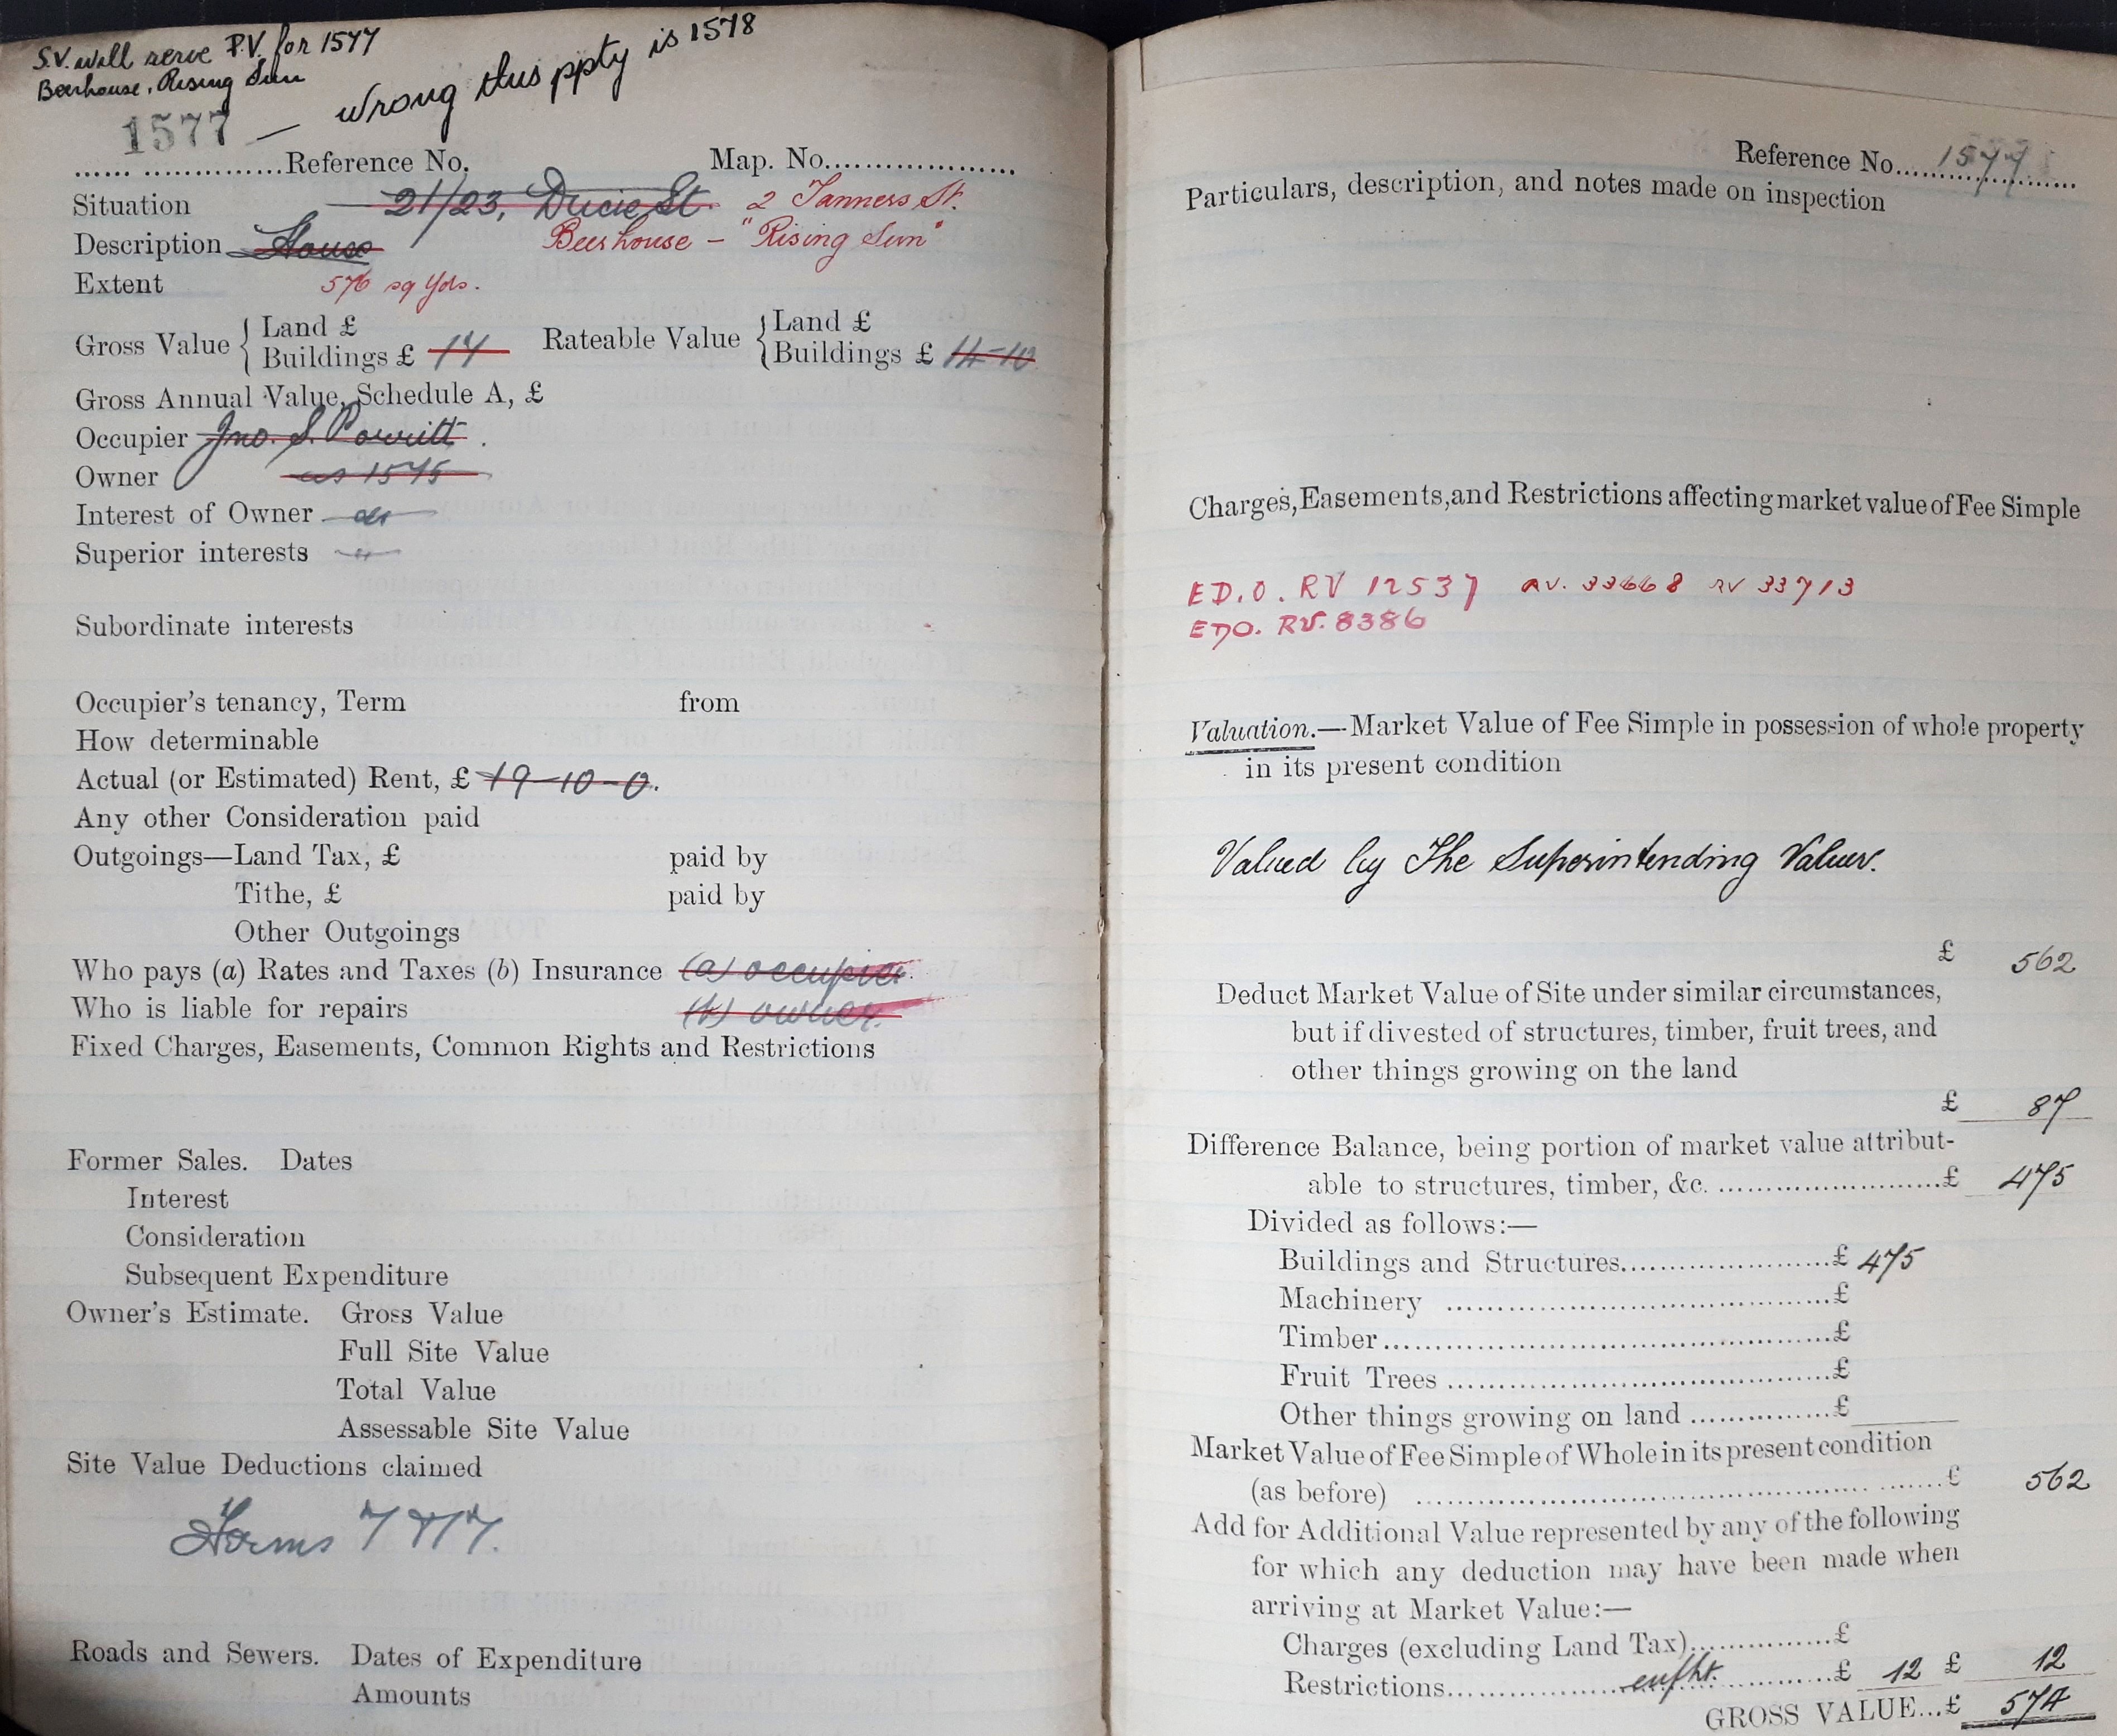 S.V. will serve P.V. for 1577
Beerhouse, Rising Sun
1577 — wrong this ppty is 1578
...... ...............Reference No. Map. No....................
Situation 21/23, Ducie St. 2 Tanners St.
Description House Beerhouse – "Rising Sun"
Extent 576 sq yds.
Gross Value { Land £ Rateable Value { Land £
Buildings £ 14 Buildings £
Gross Annual Value, Schedule A, £
Occupier Jno. S. Powitt.
Owner as 1575
Interest of Owner
Superior interests
Subordinate interests
Occupier's tenancy, Term from
How determinable
Actual (or Estimated) Rent, £ 19-10-0.
Any other Consideration paid
Outgoings—Land Tax, £ paid by
Tithe, £ paid by
Other Outgoings
Who pays (a) Rates and Taxes (b) Insurance (a) occupier.
Who is liable for repairs (b) owner.
Fixed Charges, Easements, Common Rights and Restrictions
Former Sales. Dates
Interest
Consideration
Subsequent Expenditure
Owner's Estimate. Gross Value
Full Site Value
Total Value
Assessable Site Value
Site Value Deductions claimed
Forms
Roads and Sewers. Dates of Expenditure
Amounts
Reference No....1577
Particulars, description, and notes made on inspection
Charges, Easements, and Restrictions affecting market value of Fee Simple
ED.O. RV 12537 RV. 33668 RV 33713
EDO. RV. 8386
Valuation.—Market Value of Fee Simple in possession of whole property
in its present condition
Valued by The Superintending Valuer.
£ 562
Deduct Market Value of Site under similar circumstances,
but if divested of structures, timber, fruit trees, and
other things growing on the land
£ 87
Difference Balance, being portion of market value attribut-
able to structures, timber, &c. ........................£ 475
Divided as follows:—
Buildings and Structures......................£ 475
Machinery ........................................£
Timber..............................................£
Fruit Trees ......................................£
Other things growing on land ...............£
Market Value of Fee Simple of Whole in its present condition
(as before) ..................................................£ 562
Add for Additional Value represented by any of the following
for which any deduction may have been made when
arriving at Market Value:—
Charges (excluding Land Tax)...............£
Restrictions....................enfht..........£ 12 £ 12
GROSS VALUE...£ 574